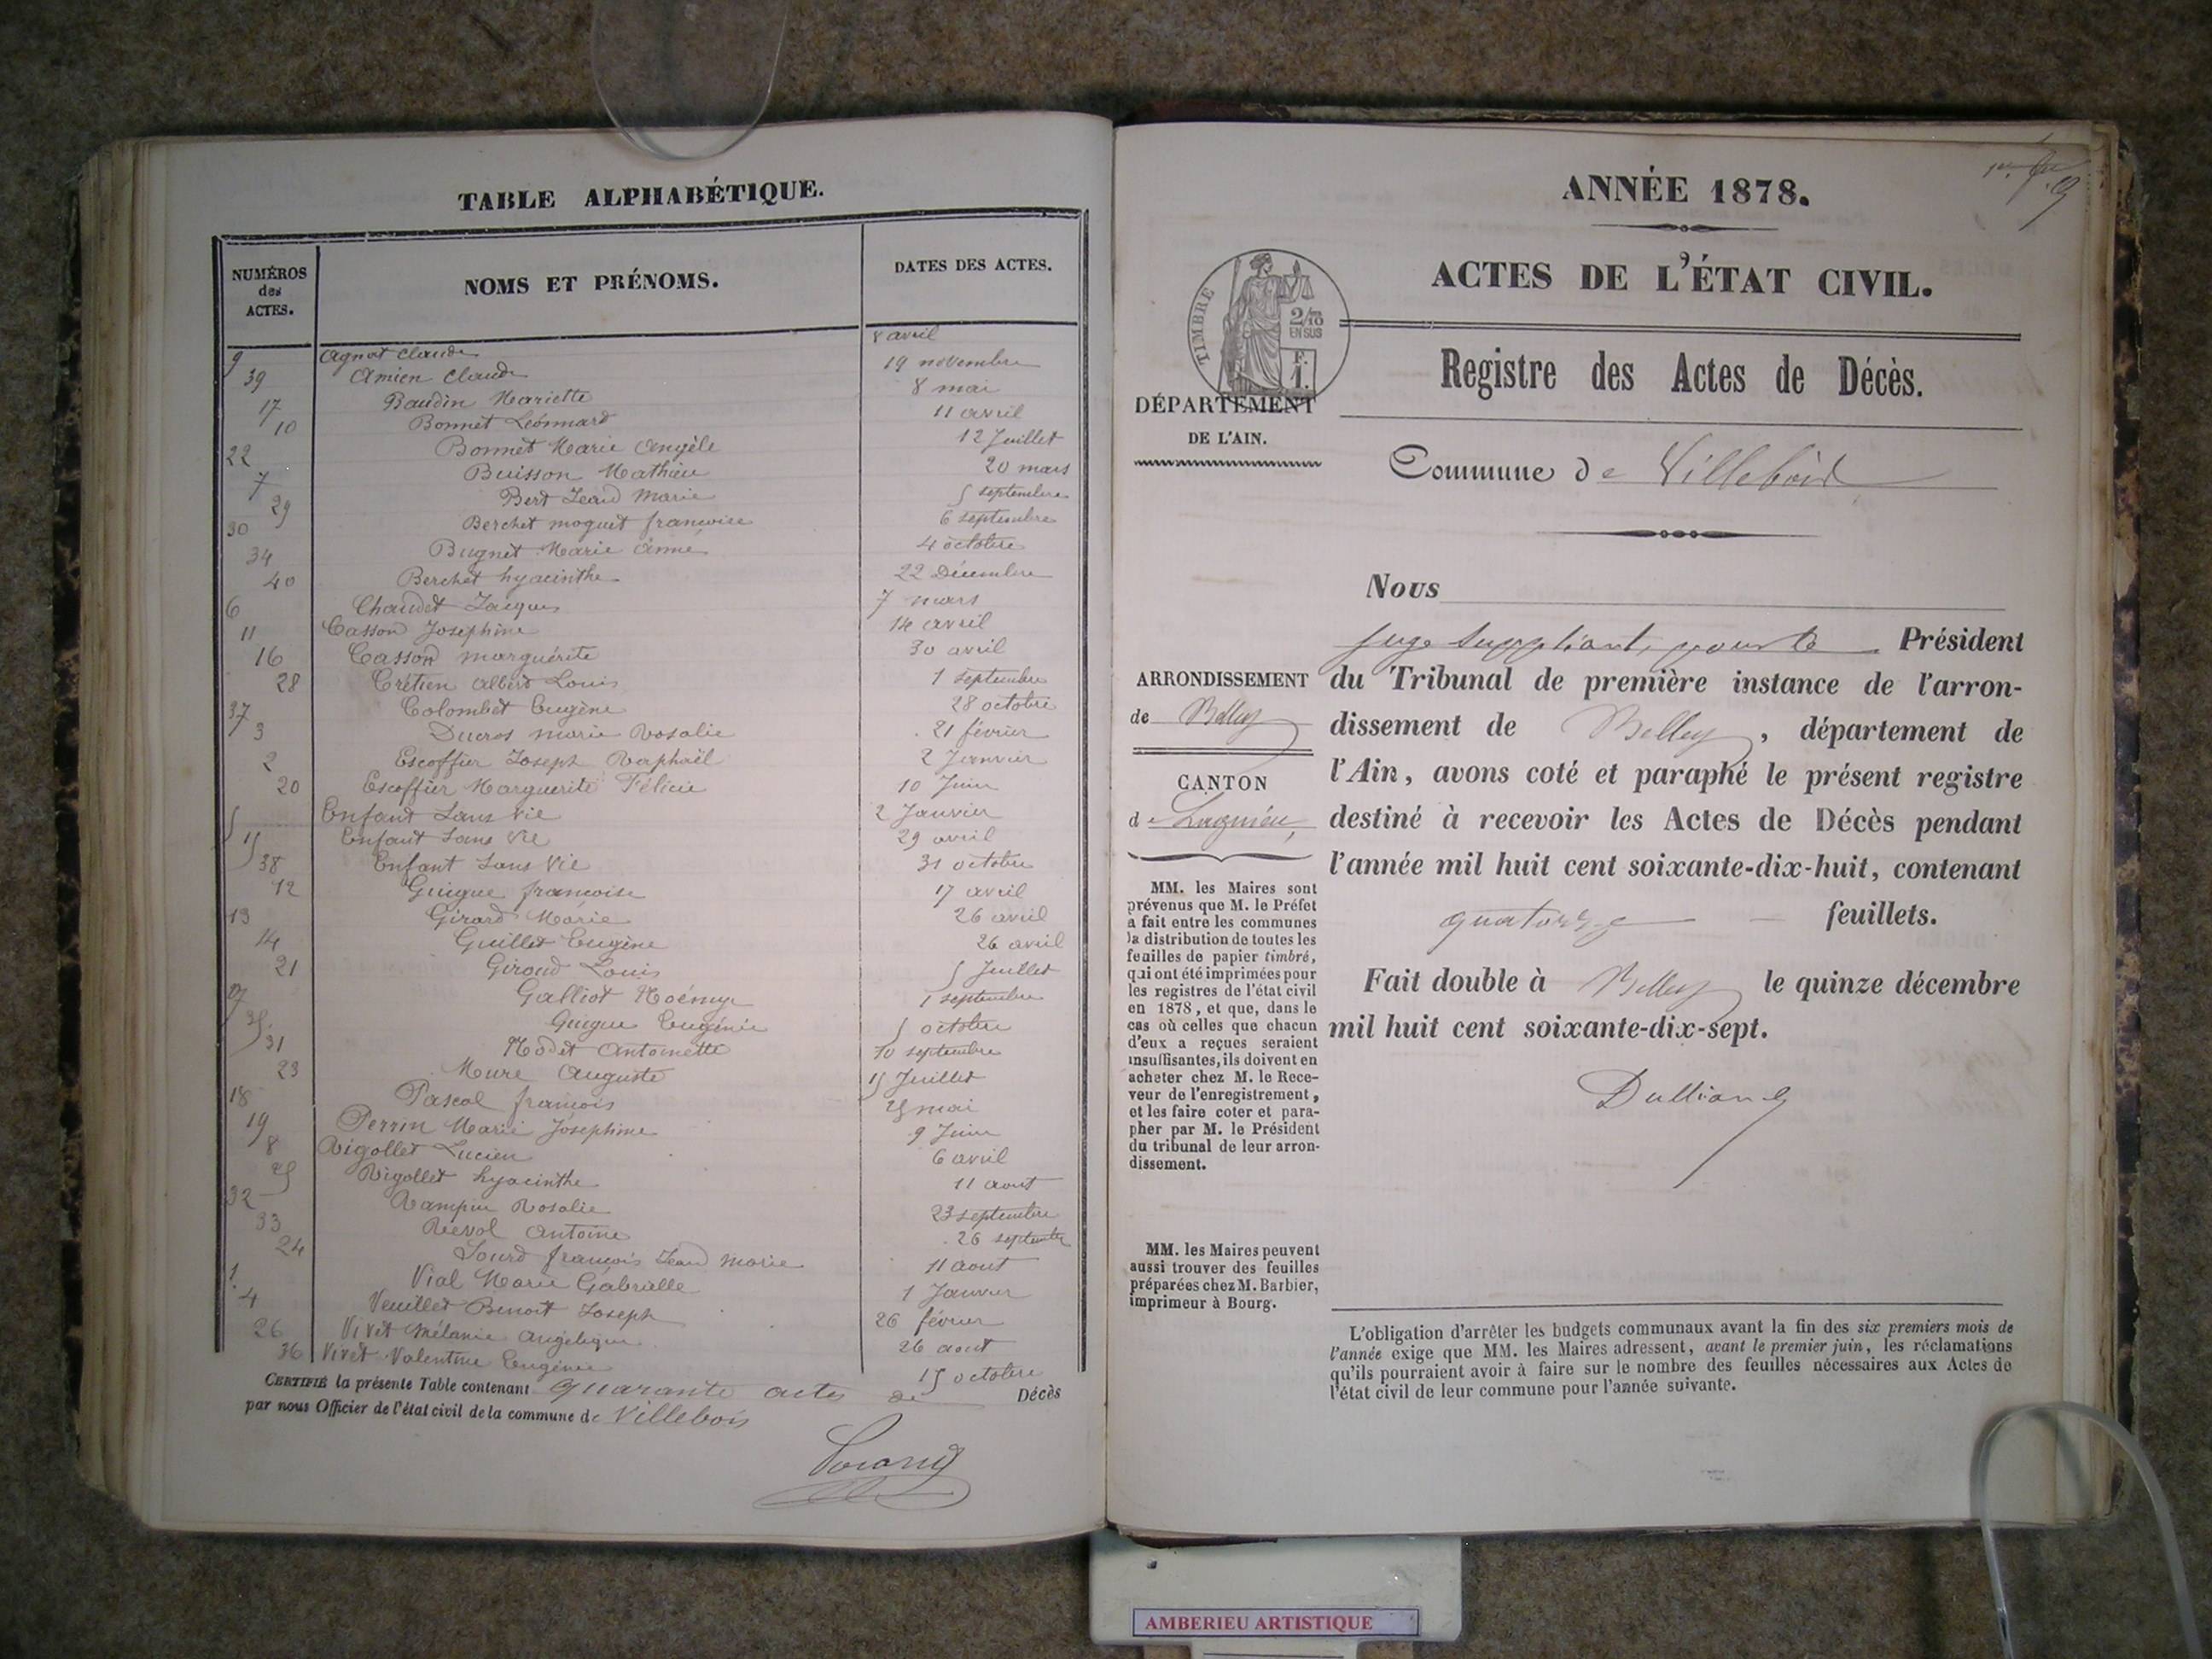 TABLE ALPHABÉTIQUE.
NUMÉROS des ACTES. NOMS ET PRÉNOMS. DATES DES ACTES.
9 Agnot Claude 8 avril
39 Amien Claude 19 novembre
17 Baudin Mariette 8 mai
10 Bonnet Léonnard 11 avril
22 Bonnet Marie Angèle 12 Juillet
7 Buisson Mathieu 20 mars
29 Bert Jean Marie 5 septembre
30 Berchet moguet françoise 6 septembre
34 Bugnet Marie Anne 4 octobre
40 Berchet hyacinthe 22 Décembre
6 Chaudet Jacques 7 mars
11 Casson Joséphine 14 avril
16 Casson marguérite 30 avril
28 Crétien Albert Louis 1 septembre
37 Colombet Eugène 28 octobre
3 Ducros marie Rosalie 21 février
2 Escoffier Joseph Raphaël 2 Janvier
20 Escoffier Marguerite Félicie 10 Juin
5 Enfant Sans Vie 2 Janvier
15 Enfant Sans Vie 29 avril
38 Enfant Sans Vie 31 octobre
12 Guigue françoise 17 avril
13 Girard Marie 26 avril
14 Guillet Eugène 26 avril
21 Giroud Louis 5 Juillet
27 Galliot Noémye 1 septembre
35 Guigue Eugénie 5 octobre
31 Modet Antoinette 10 septembre
23 Mure Auguste 15 Juillet
18 Pascal françois 25 mai
19 Perrin Marie Joséphine 9 Juin
8 Rigollet Lucien 6 avril
25 Rigollet hyacinthe 11 aout
32 Rampin Rosalie 23 septembre
33 Revol Antoine 26 septembre
24 Sourd françois Jean Marie 11 aout
1 Vial Marie Gabrielle 1 Janvier
4 Veuillet Benoit Joseph 26 février
26 Vivet Mélanie Angélique 26 aout
36 Vivet Valentine Eugénie 15 octobre
CERTIFIÉ la présente Table contenant quarante actes de Décès
par nous Officier de l'état civil de la commune de Villebois
ANNÉE 1878.
ACTES DE L'ÉTAT CIVIL.
TIMBRE
2/10
EN SUS
F.
1.
Registre des Actes de Décès.
DÉPARTEMENT
DE L'AIN.
Commune de Villebois
Nous
juge suppléant, pour le Président
du Tribunal de première instance de l'arron-
dissement de Belley, département de
l'Ain, avons coté et paraphé le présent registre
destiné à recevoir les Actes de Décès pendant
l'année mil huit cent soixante-dix-huit, contenant
quatorze feuillets.
Fait double à Belley le quinze décembre
mil huit cent soixante-dix-sept.
ARRONDISSEMENT
de Belley
CANTON
de Lagnieu,
MM. les Maires sont
prévenus que M. le Préfet
a fait entre les communes
la distribution de toutes les
feuilles de papier timbré,
qui ont été imprimées pour
les registres de l'état civil
en 1878, et que, dans le
cas où celles que chacun
d'eux a reçues seraient
insuffisantes, ils doivent en
acheter chez M. le Rece-
veur de l'enregistrement,
et les faire coter et para-
pher par M. le Président
du tribunal de leur arron-
dissement.
MM. les Maires peuvent
aussi trouver des feuilles
préparées chez M. Barbier,
imprimeur à Bourg.
L'obligation d'arrêter les budgets communaux avant la fin des six premiers mois de
l'année exige que MM. les Maires adressent, avant le premier juin, les réclamations
qu'ils pourraient avoir à faire sur le nombre des feuilles nécessaires aux Actes de
l'état civil de leur commune pour l'année suivante.
AMBERIEU ARTISTIQUE